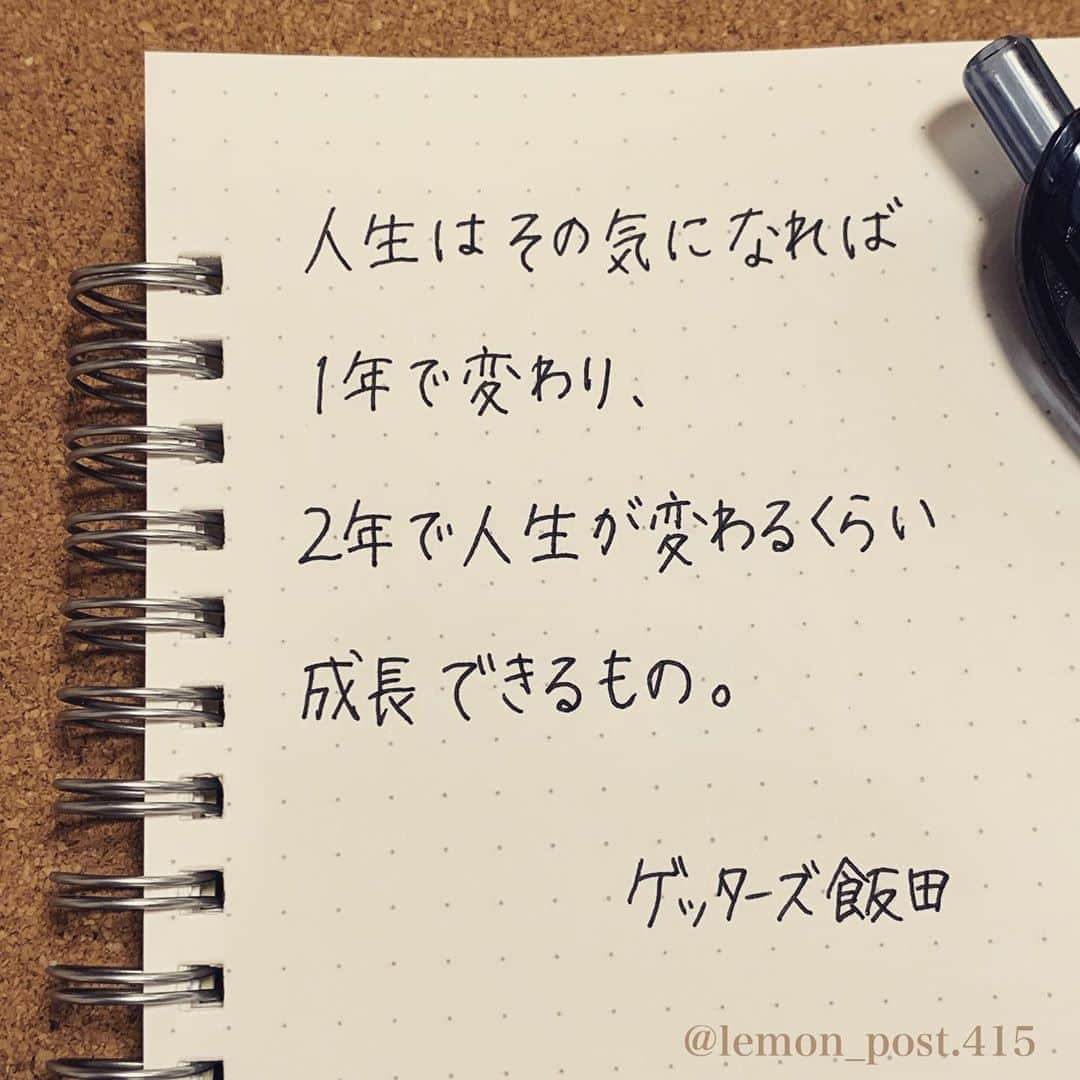 人生はその気になれば
1年で変わり、
2年で人生が変わるくらい
成長できるもの。
ゲッターズ飯田
@lemon_post.415